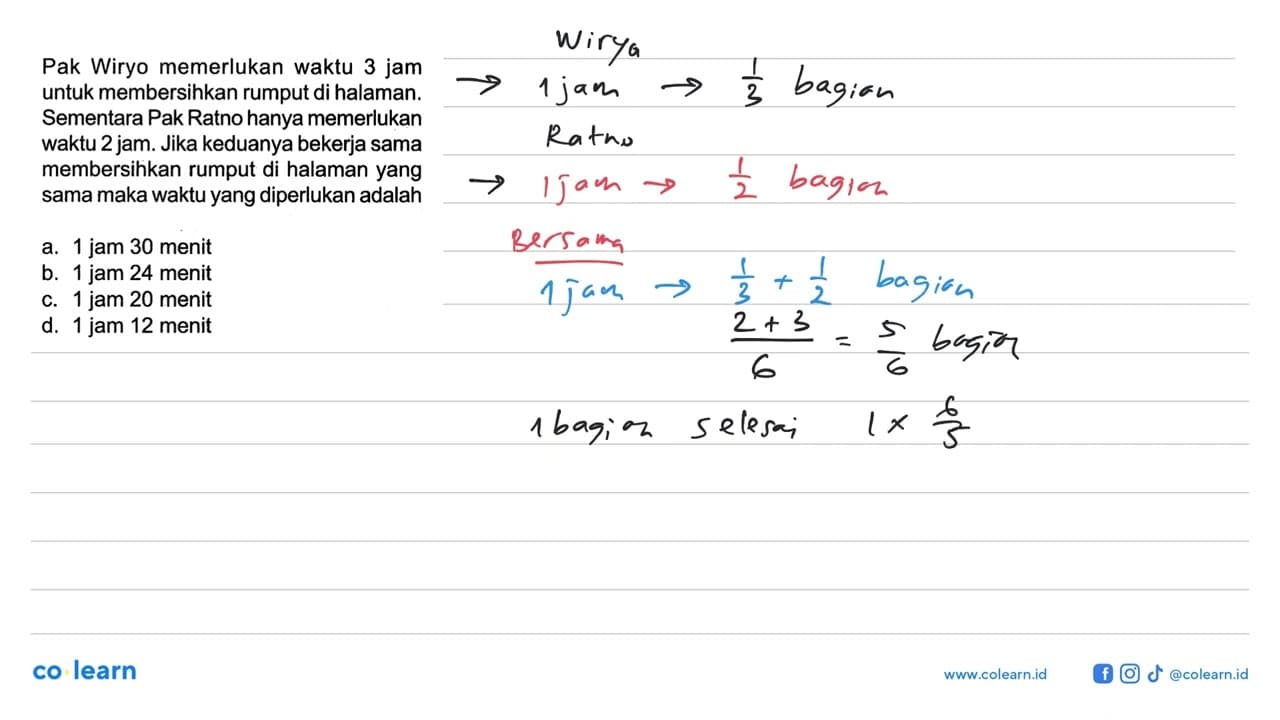 Pak Wiryo memerlukan waktu 3 jam
untuk membersihkan rumput di halaman.
Sementara Pak Ratno hanya memerlukan
waktu 2 jam. Jika keduanya bekerja sama
membersihkan rumput di halaman yang
sama maka waktu yang diperlukan adalah
a. 1 jam 30 menit
b. 1 jam 24 menit
c. 1 jam 20 menit
d. 1 jam 12 menit
Wirya
→ 1 jam → 1/3 bagian
Ratno
→ 1 jam → 1/2 bagian
Bersama
1 jam → 1/3 + 1/2 bagian
(2 + 3)/6 = 5/6 bagian
1 bagian selesai 1 × 6/5
co learn
www.colearn.id
@colearn.id